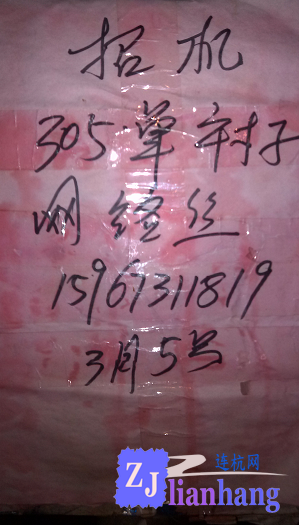 招机
305單子
网丝
15967311819
3月5号
ZJ 连杭网
lianhang